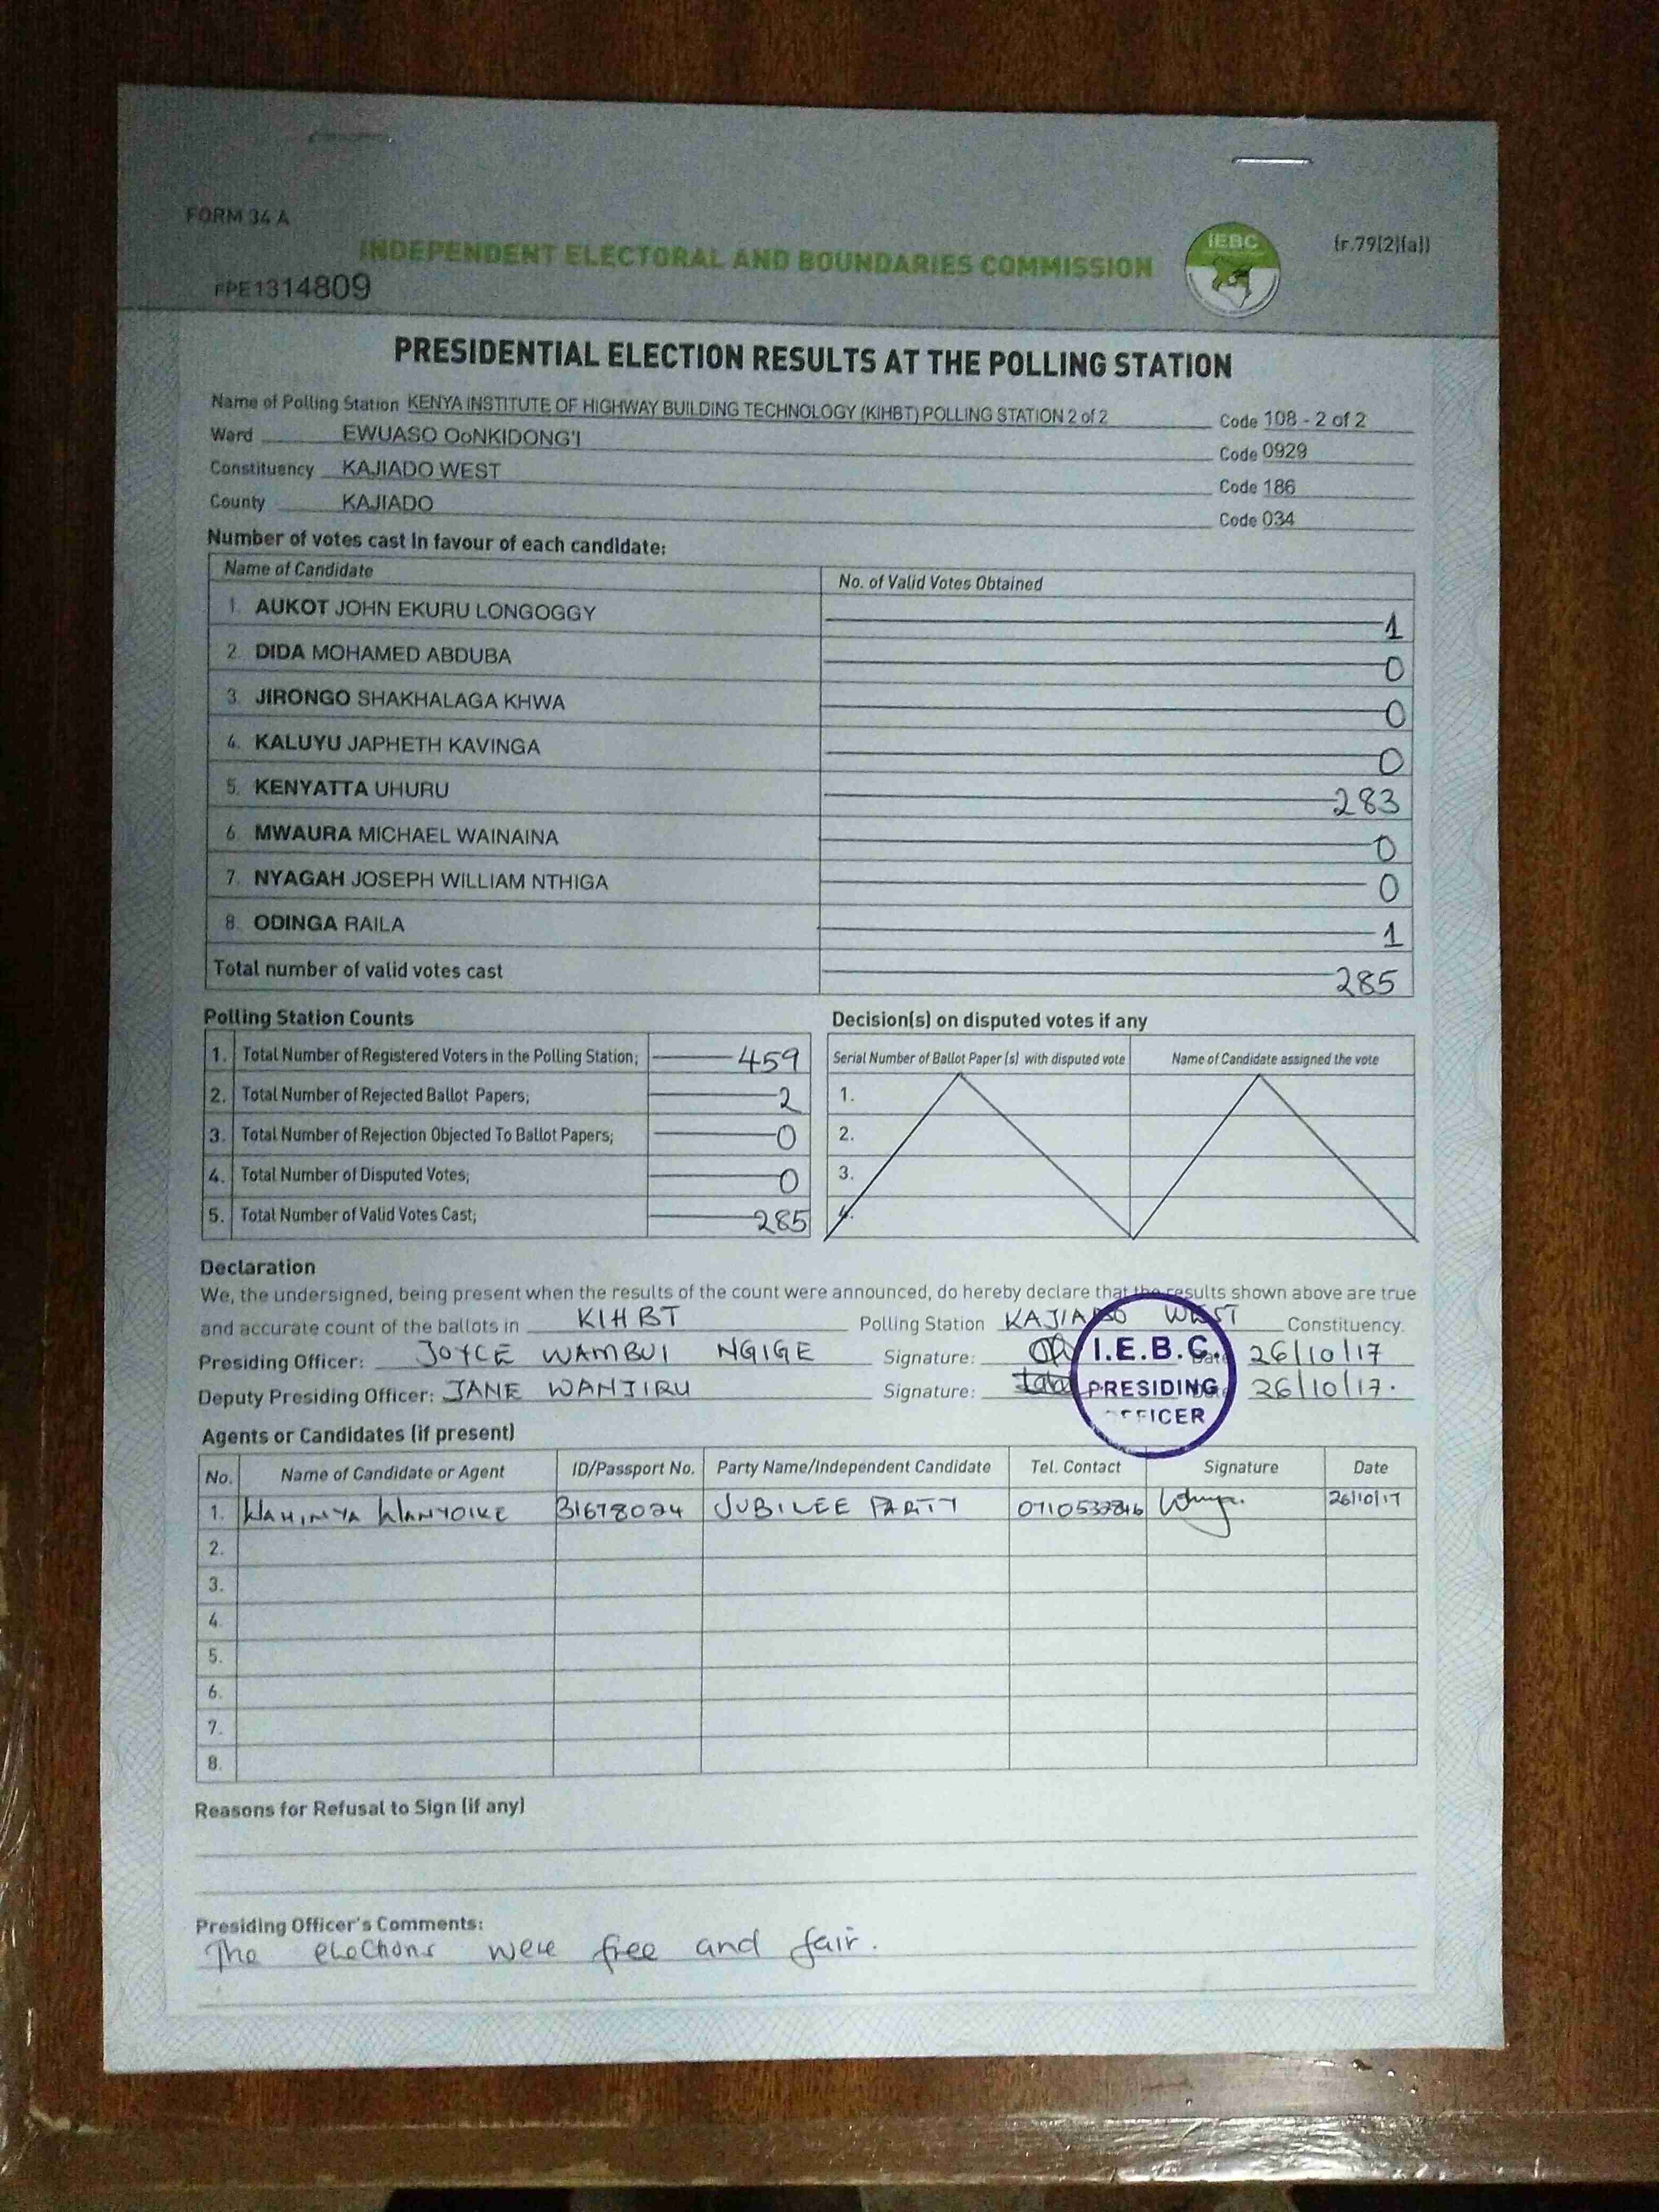 FORM 34 A
INDEPENDENT ELECTORAL AND BOUNDARIES COMMISSION
IEBC
(r.79(2)(a))
FPE1314809
PRESIDENTIAL ELECTION RESULTS AT THE POLLING STATION
Name of Polling Station KENYA INSTITUTE OF HIGHWAY BUILDING TECHNOLOGY (KIHBT) POLLING STATION 2 of 2 Code 108 - 2 of 2
Ward EWUASO OoNKIDONG'I Code 0929
Constituency KAJIADO WEST Code 186
County KAJIADO Code 034
Number of votes cast in favour of each candidate:
Name of Candidate No. of Valid Votes Obtained
1. AUKOT JOHN EKURU LONGOGGY 1
2. DIDA MOHAMED ABDUBA 0
3. JIRONGO SHAKHALAGA KHWA 0
4. KALUYU JAPHETH KAVINGA 0
5. KENYATTA UHURU 283
6. MWAURA MICHAEL WAINAINA 0
7. NYAGAH JOSEPH WILLIAM NTHIGA 0
8. ODINGA RAILA 1
Total number of valid votes cast 285
Polling Station Counts
1. Total Number of Registered Voters in the Polling Station; 459
2. Total Number of Rejected Ballot Papers; 2
3. Total Number of Rejection Objected To Ballot Papers; 0
4. Total Number of Disputed Votes; 0
5. Total Number of Valid Votes Cast; 285
Decision(s) on disputed votes if any
Serial Number of Ballot Paper (s) with disputed vote Name of Candidate assigned the vote
1.
2.
3.
4.
Declaration
We, the undersigned, being present when the results of the count were announced, do hereby declare that the results shown above are true
and accurate count of the ballots in KIHBT Polling Station KAJIADO WEST Constituency.
Presiding Officer: JOYCE WAMBUI NGIGE Signature: Date 26/10/17
Deputy Presiding Officer: JANE WANJIRU Signature: Date 26/10/17.
I.E.B.C.
PRESIDING
OFFICER
Agents or Candidates (if present)
No. Name of Candidate or Agent ID/Passport No. Party Name/Independent Candidate Tel. Contact Signature Date
1. WAHINYA WANYOIKE 31678024 JUBILEE PARTY 26/10/17
2.
3.
4.
5.
6.
7.
8.
Reasons for Refusal to Sign (if any)
Presiding Officer's Comments:
The elections were free and fair.